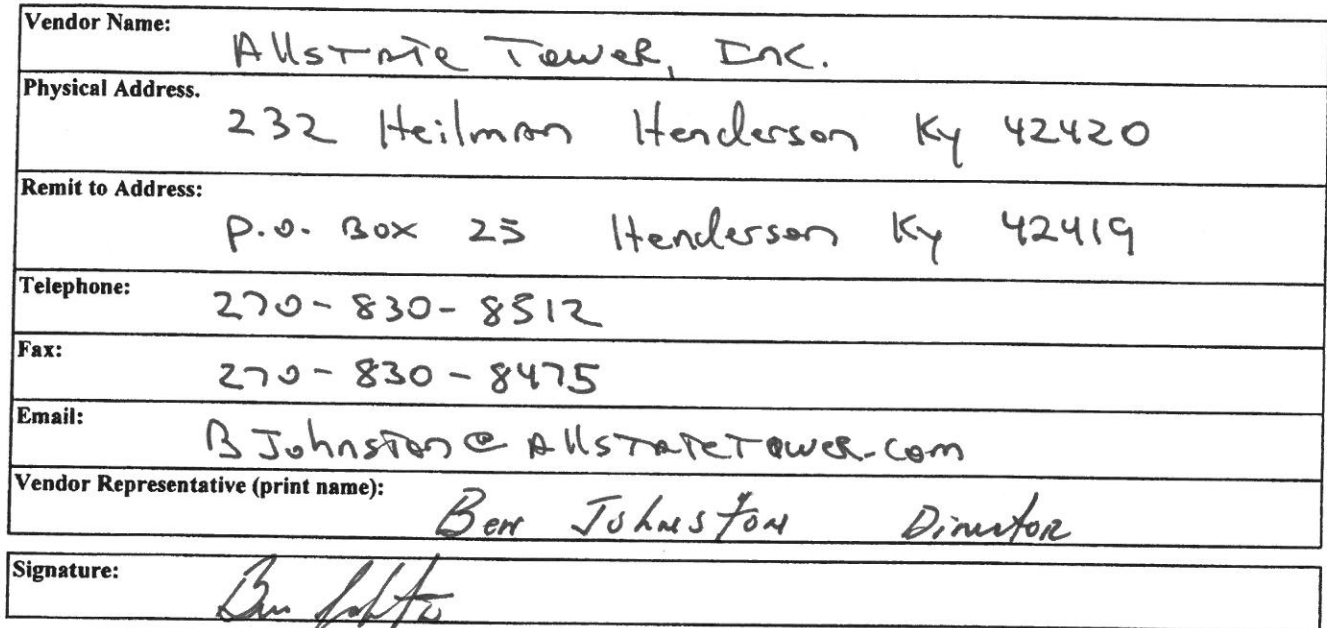 Vendor Name:
Allstate Tower, Inc.
Physical Address.
232 Heilman Henderson Ky 42420
Remit to Address:
P.O. Box 25 Henderson Ky 42419
Telephone:
270-830-8512
Fax:
270-830-8475
Email:
BJohnston@AllstateTower.com
Vendor Representative (print name):
Ben Johnston Director
Signature: